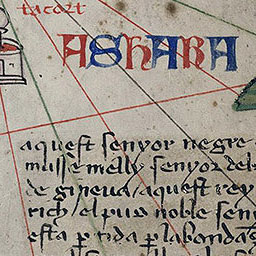 tacort
ASHARA
aquest senyor negre
musse melly senyor del
de gineua / aquest rey
rich / el pus noble seny
esta p tida p labondaç